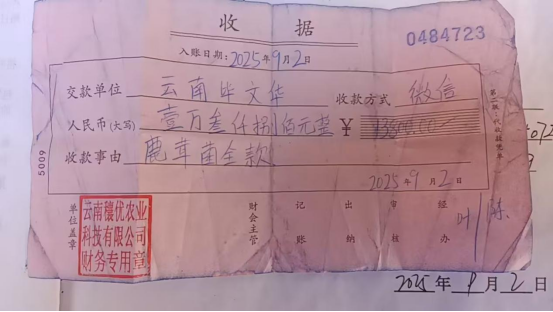 收据
0484723
入账日期：2025年9月2日
交款单位 云南毕文华 收款方式 微信
人民币(大写) 壹万叁仟捌佰元整 ¥ 13800.00
收款事由 鹿茸菌全款
2025年9月2日
5009
单位盖章
云南穰优农业
科技有限公司
财务专用章
财会主管
记账
出纳
审核
经办
叶 陈
2025年9月2日